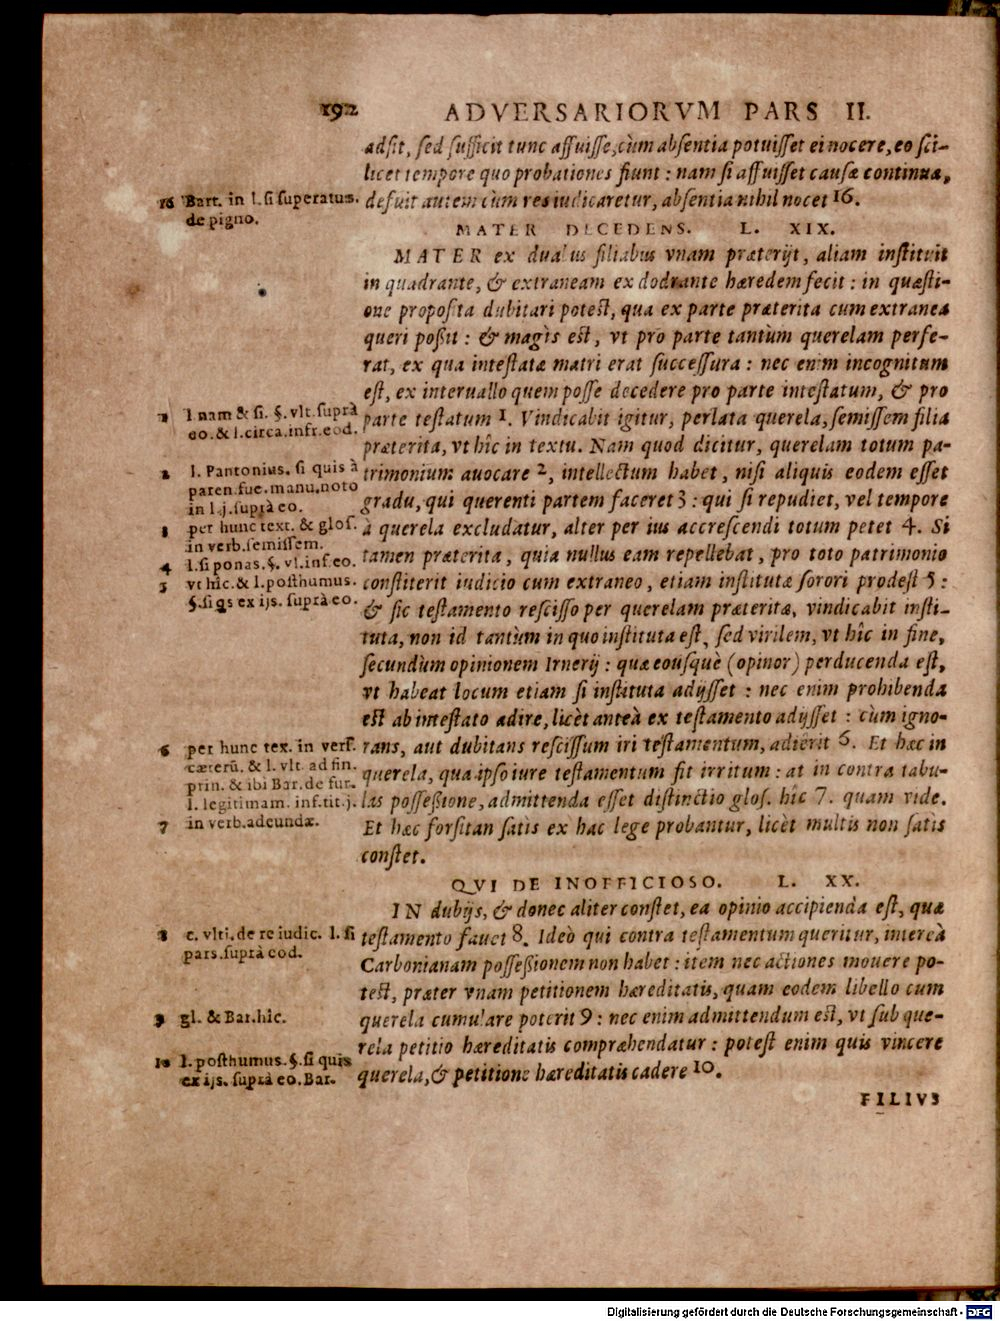 192 ADVERSARIORVM PARS II.
adsit, sed sufficit tunc affuisse, cùm absentia potuisset ei nocere, eo sci-
licet tempore quo probationes fiunt : nam si affuisset causæ continua,
defuit autem cùm res iudicaretur, absentia nihil nocet 16.
16 Bart. in l. si superatus.
de pigno.
MATER DECEDENS. L. XIX.
MATER ex duabus filiabus vnam præterijt, aliam instituit
in quadrante, & extraneam ex dodrante hæredem fecit : in quæsti-
one proposita dubitari potest, qua ex parte præterita cum extranea
queri possit : & magìs est, vt pro parte tantùm querelam perfe-
rat, ex qua intestatæ matri erat successura : nec enim incognitum
est, ex interuallo quem posse decedere pro parte intestatum, & pro
parte testatum 1. Vindicabit igitur, perlata querela, semissem filia
præterita, vt hîc in textu. Nam quod dicitur, querelam totum pa-
trimonium auocare 2, intellectum habet, nisi aliquis eodem esset
gradu, qui querenti partem faceret 3 : qui si repudiet, vel tempore
à querela excludatur, alter per ius accrescendi totum petet 4. Si
tamen præterita, quia nullus eam repellebat, pro toto patrimonio
constiterit iudicio cum extraneo, etiam institutæ sorori prodest 5 :
& sic testamento rescisso per querelam præteritæ, vindicabit insti-
tuta, non id tantùm in quo instituta est, sed virilem, vt hîc in fine,
secundùm opinionem Irnerij : quæ eousquè (opinor) perducenda est,
vt habeat locum etiam si instituta adijsset : nec enim prohibenda
est ab intestato adire, licèt anteà ex testamento adijsset : cùm igno-
rans, aut dubitans rescissum iri testamentum, adierit 6. Et hæc in
querela, qua ipso iure testamentum fit irritum : at in contra tabu-
las possessione, admittenda esset distinctio glos. hîc 7. quam vide.
Et hæc forsitan satis ex hac lege probantur, licèt multis non satis
constet.
1 l. nam & si. §. vlt. suprà
eo. & l. circa. infr. eod.
2 l. Pantonius. si quis à
paren. fue. manu. noto
in l. j. suprà eo.
3 per hunc text. & glos.
in verb. semissem.
4 l. si ponas. §. vl. inf. eo.
5 vt hîc. & l. posthumus.
§. si qs ex ijs. suprà eo.
6 per hunc tex. in vers.
cæterũ. & l. vlt. ad fin.
prin. & ibi Bar. de fur.
l. legitimam. inf. tit. j.
7 in verb. adeundæ.
QVI DE INOFFICIOSO. L. XX.
IN dubijs, & donec aliter constet, ea opinio accipienda est, quæ
testamento fauet 8. Ideò qui contra testamentum queritur, intereà
Carbonianam possessionem non habet : item nec actiones mouere po-
test, præter vnam petitionem hæreditatis, quam eodem libello cum
querela cumulare poterit 9 : nec enim admittendum est, vt sub que-
rela petitio hæreditatis compræhendatur : potest enim quis vincere
querela, & petitione hæreditatis cadere 10.
8 c. vlti. de re iudic. l. si
pars. suprà eod.
9 gl. & Bar. hîc.
10 l. posthumus. §. si quis
ex ijs. suprà eo. Bar.
FILIVS
Digitalisierung gefördert durch die Deutsche Forschungsgemeinschaft - DFG